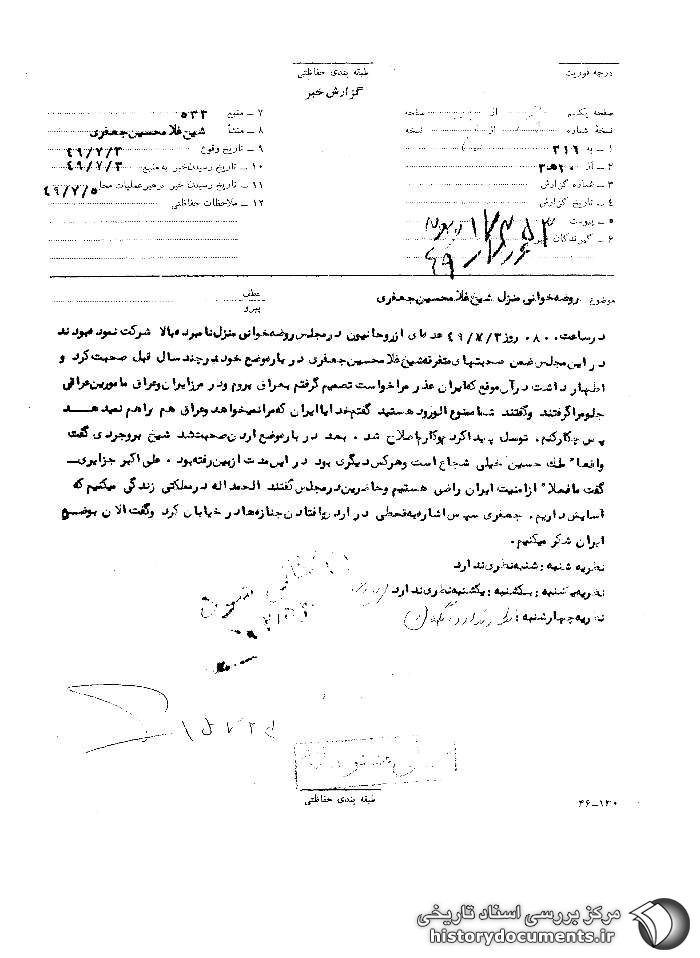 درجه فوریت
طبقه بندی حفاظتی
گزارش خبر
صفحه یکم از صفحه
نسخه شماره از نسخه
۱ ــ به ۳۱۶
۲ ــ از ۲۰ هـ ۳
۳ ــ شماره گزارش
۴ ــ تاریخ گزارش
۵ ــ پیوست
۶ ــ گیرندگان خبر
۷ ــ منبع ۵۳۳
۸ ــ منشأ شیخ غلامحسین جعفری
۹ ــ تاریخ وقوع ۴۹/۷/۳
۱۰ ــ تاریخ رسیدن خبر به منبع ۴۹/۷/۳
۱۱ ــ تاریخ رسیدن خبر به رهبر عملیات محل ۴۹/۷/۵
۱۲ ــ ملاحظات حفاظتی
موضوع روضه خوانی منزل شیخ غلامحسین جعفری
عطف
پیرو
در ساعت ۰۸۰۰ روز ۴۹/۷/۳ عده‌ای از روحانیون در مجلس روضه خوانی منزل نامبرده بالا شرکت نموده بودند
در این مجلس ضمن صحبتهای متفرقه شیخ غلامحسین جعفری در باره وضع خود در چند سال قبل صحبت کرد و
اظهار داشت در آن موقع که ایران عذر مرا خواست تصمیم گرفتم بعراق بروم ودر مرز ایران وعراق مامورین عراقی
جلو مرا گرفتند وگفتند شما ممنوع الورود هستید گفتم خدایا ایران که مرا نمیخواهد وعراق هم راهم نمیدهد
پس چکار کنم. توسل پیدا کردم وکارم اصلاح شد . بعد در باره وضع اردن صحبت شد شیخ بروجردی گفت
واقعا" ملک حسین خیلی شجاع است وهرکس دیگری بود در این مدت از بین رفته بود . علی اکبر جزایری
گفت ما فعلا" از امنیت ایران راضی هستیم وحاضرین در مجلس گفتند الحمد اله در مملکتی زندگی میکنیم که
آسایش داریم. جعفری سپس اشاره به قحطی در اردن وافتادن جنازه ها در خیابان کرد وگفت الان بوضع
ایران شکر میکنیم.
نظریه شنبه : شنبه نظری ندارد
نظریه یکشنبه : یکشنبه نظری ندارد
نظریه چهارشنبه : نظری ندارد
طبقه بندی حفاظتی
۴۶-۱۳۰
مرکز بررسی اسناد تاریخی
historydocuments.ir